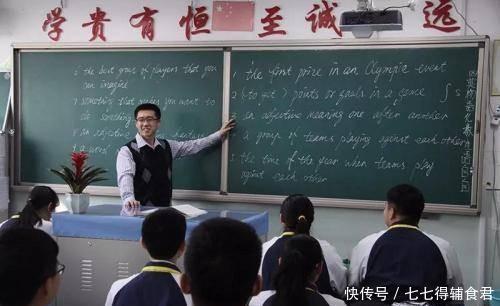 学贵有恒 至诚 远
the best group of players that you
can imagine
something that makes you want to
do something
an adjective
1 the first prize in an Olympic event
2 (to get) points or goals in a game
3 an adjective meaning one after another
4 a group of teams playing against each other
5 the time of the year when teams play
against each other
快传号 / 七七得辅食君